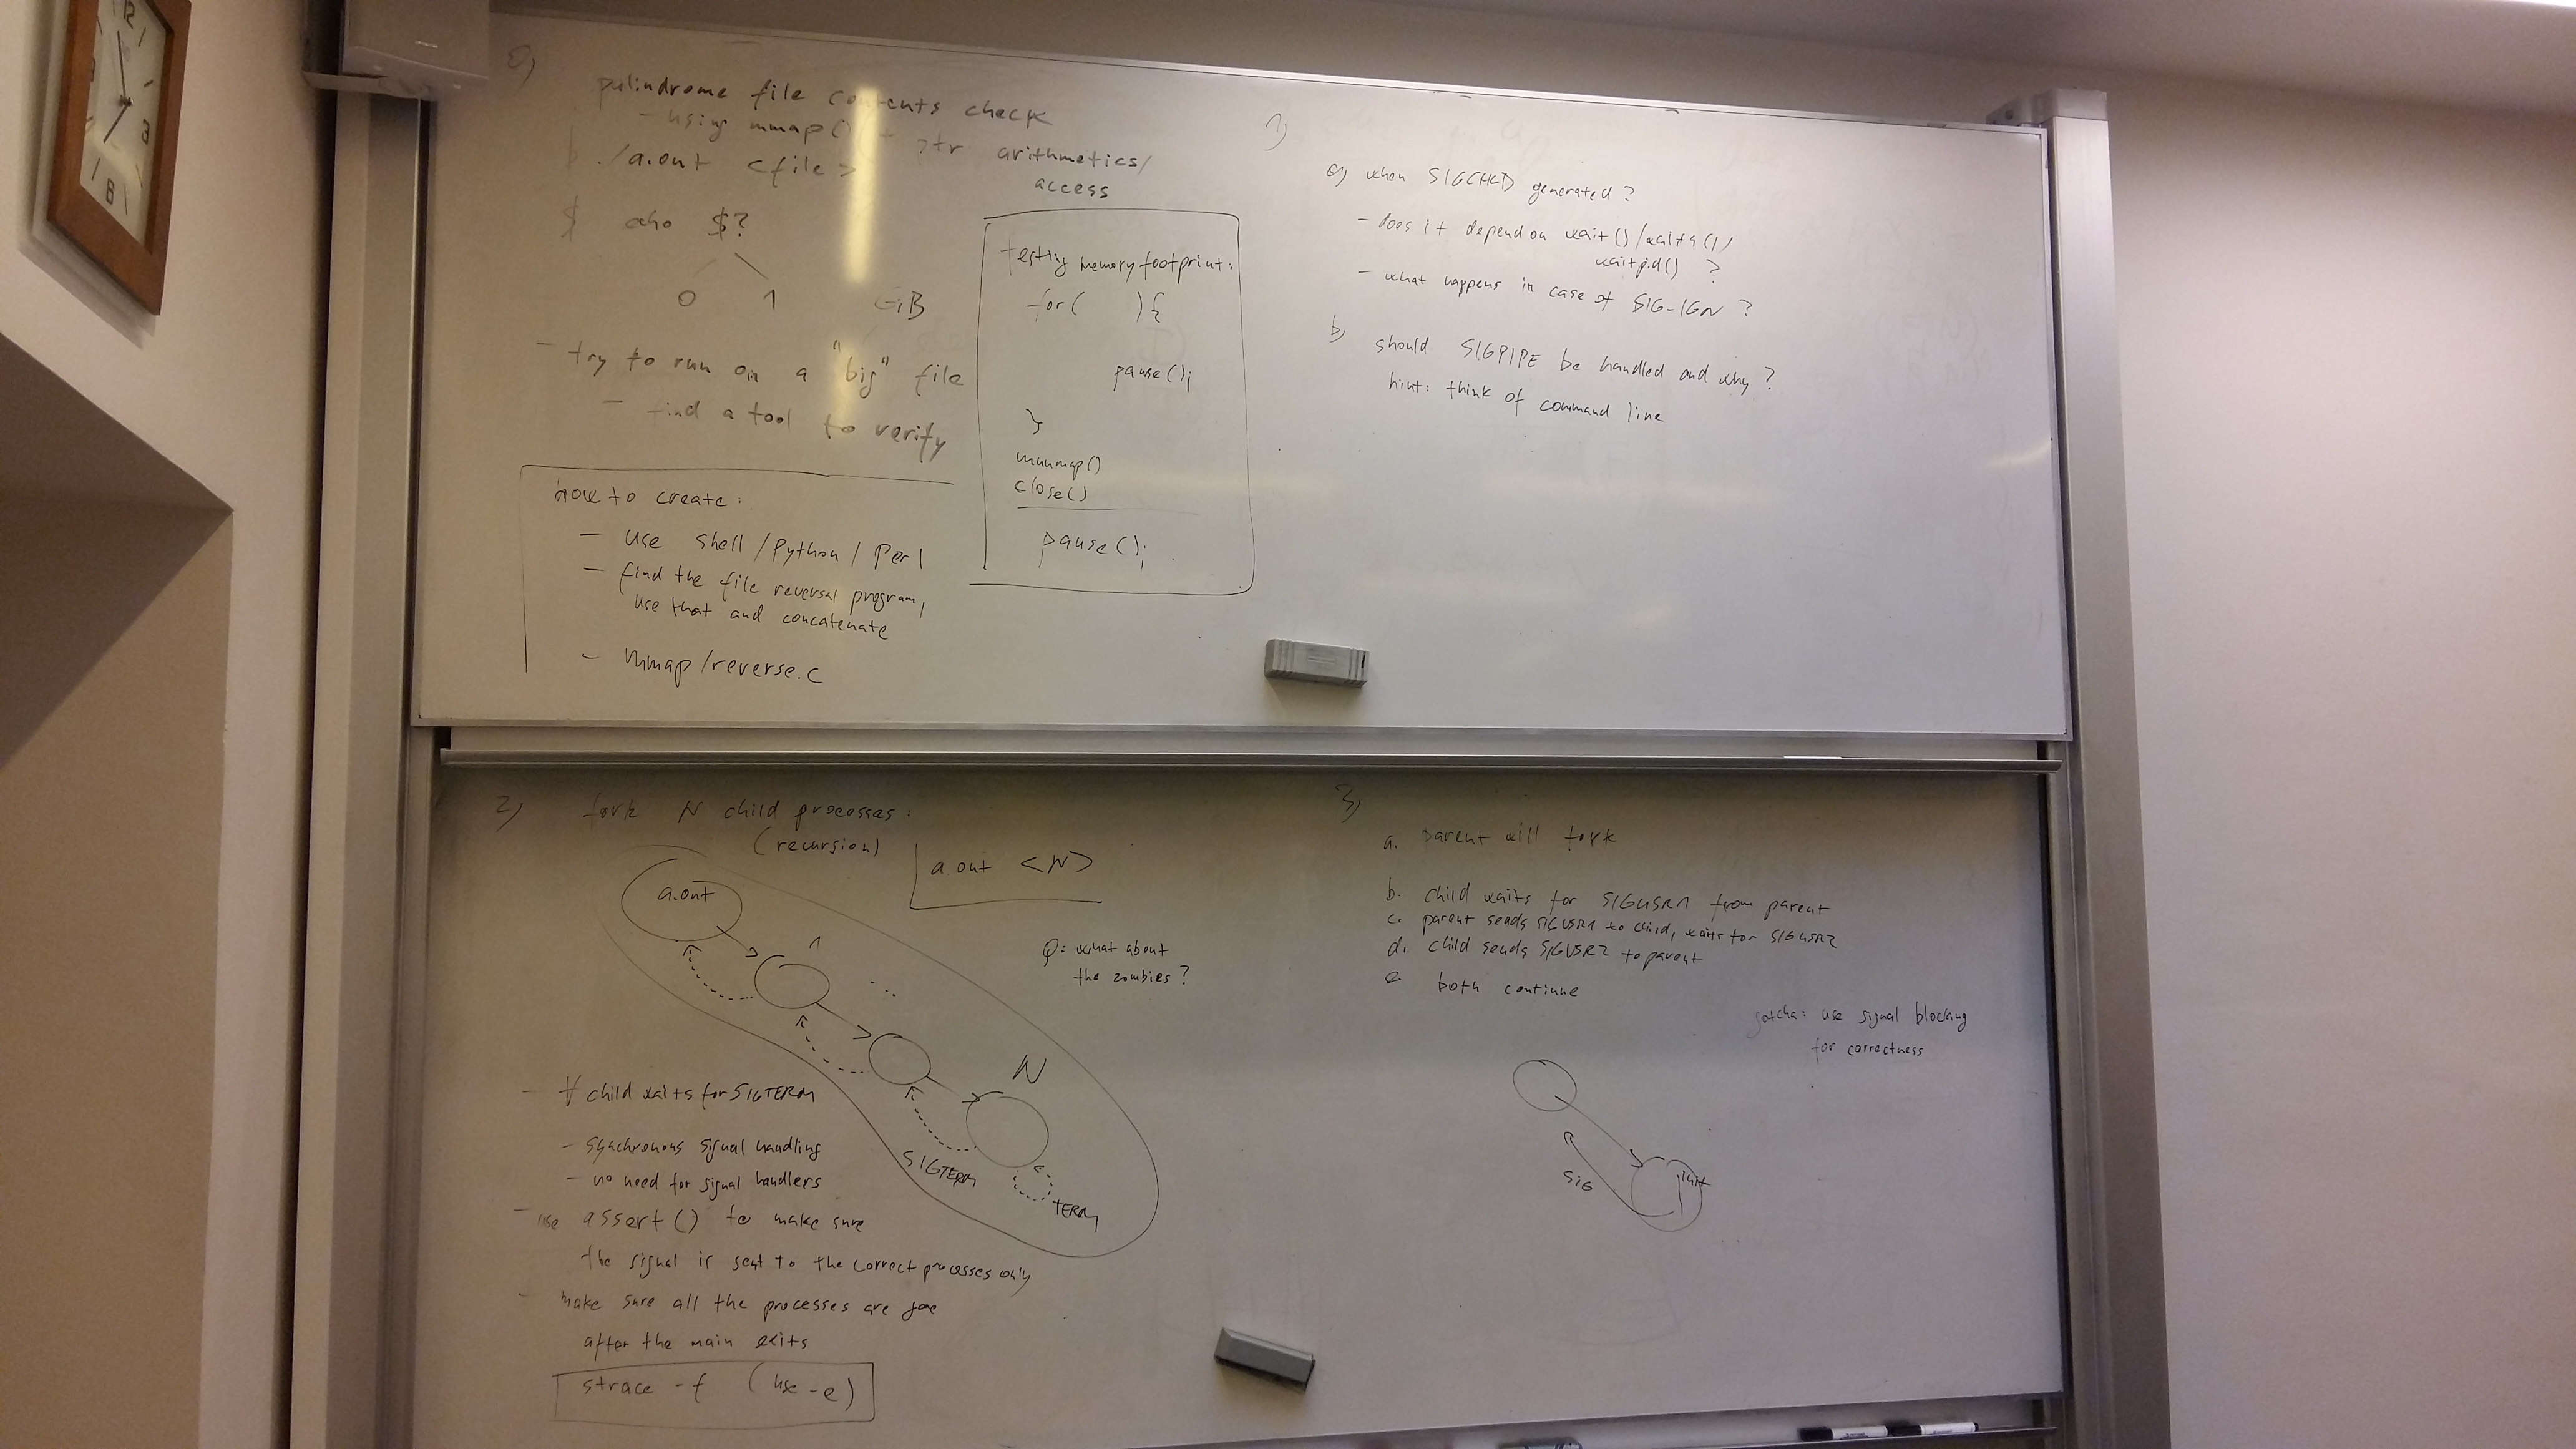 0)
palindrome file contents check
- using mmap() + ptr arithmetics/
access
$ ./a.out <file>
$ echo $?
0 1
GiB
- try to run on a "big" file
- find a tool to verify
how to create:
- use shell/Python/Perl
- find the file reversal program,
use that and concatenate
- mmap/reverse.c
Testing memory footprint:
for( ){
pause();
}
munmap()
close()
pause();
1)
a) when SIGCHLD generated?
- does it depend on wait()/wait4()/
waitpid() ?
- what happens in case of SIG-IGN ?
b) should SIGPIPE be handled and why ?
hint: think of command line
2) fork N child processes:
(recursion)
a.out <N>
a.out
1
...
N
SIGTERM
TERM
Q: what about
the zombies?
- ∀ child waits for SIGTERM
- synchronous signal handling
- no need for signal handlers
- use assert() to make sure
the signal is sent to the correct processes only
- make sure all the processes are gone
after the main exits
strace -f (use -e)
3)
a. parent will fork
b. child waits for SIGUSR1 from parent
c. parent sends SIGUSR1 to child, waits for SIGUSR2
d. child sends SIGUSR2 to parent
e. both continue
gotcha: use signal blocking
for correctness
SIG
init